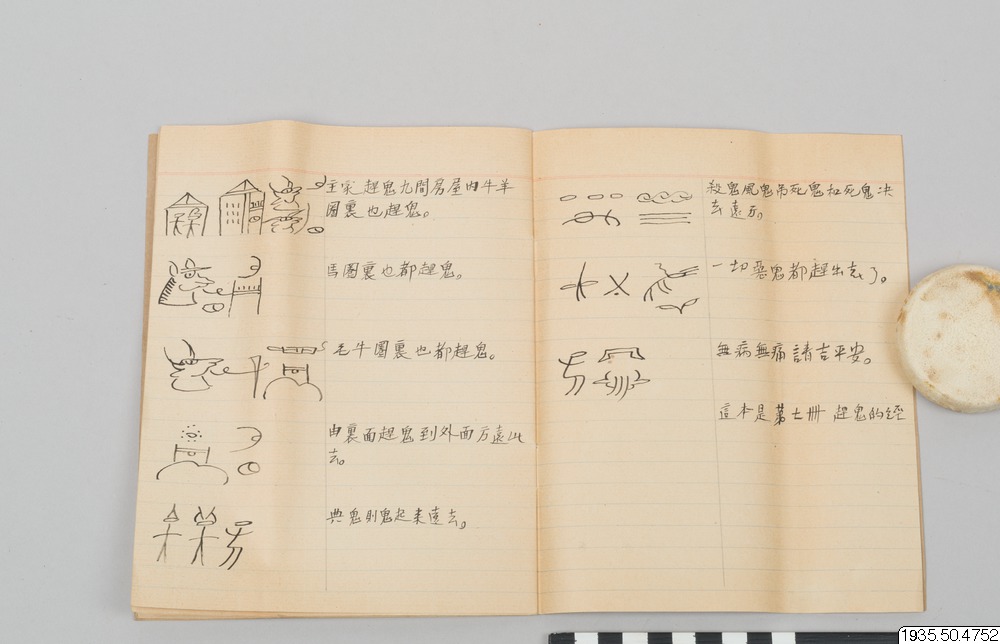 主家趕鬼九間房屋内牛羊
圈裏也趕鬼。
馬圈裏也都趕鬼。
毛牛圈裏也都趕鬼。
由裏面趕鬼到外面方遠山
去。
典鬼則鬼起来遠去。
殺鬼風鬼吊死鬼和死鬼决
去遠方。
一切惡鬼都趕出去了。
無病無痛請吉平安。
這本是第七冊 趕鬼的經
1935.50.4752